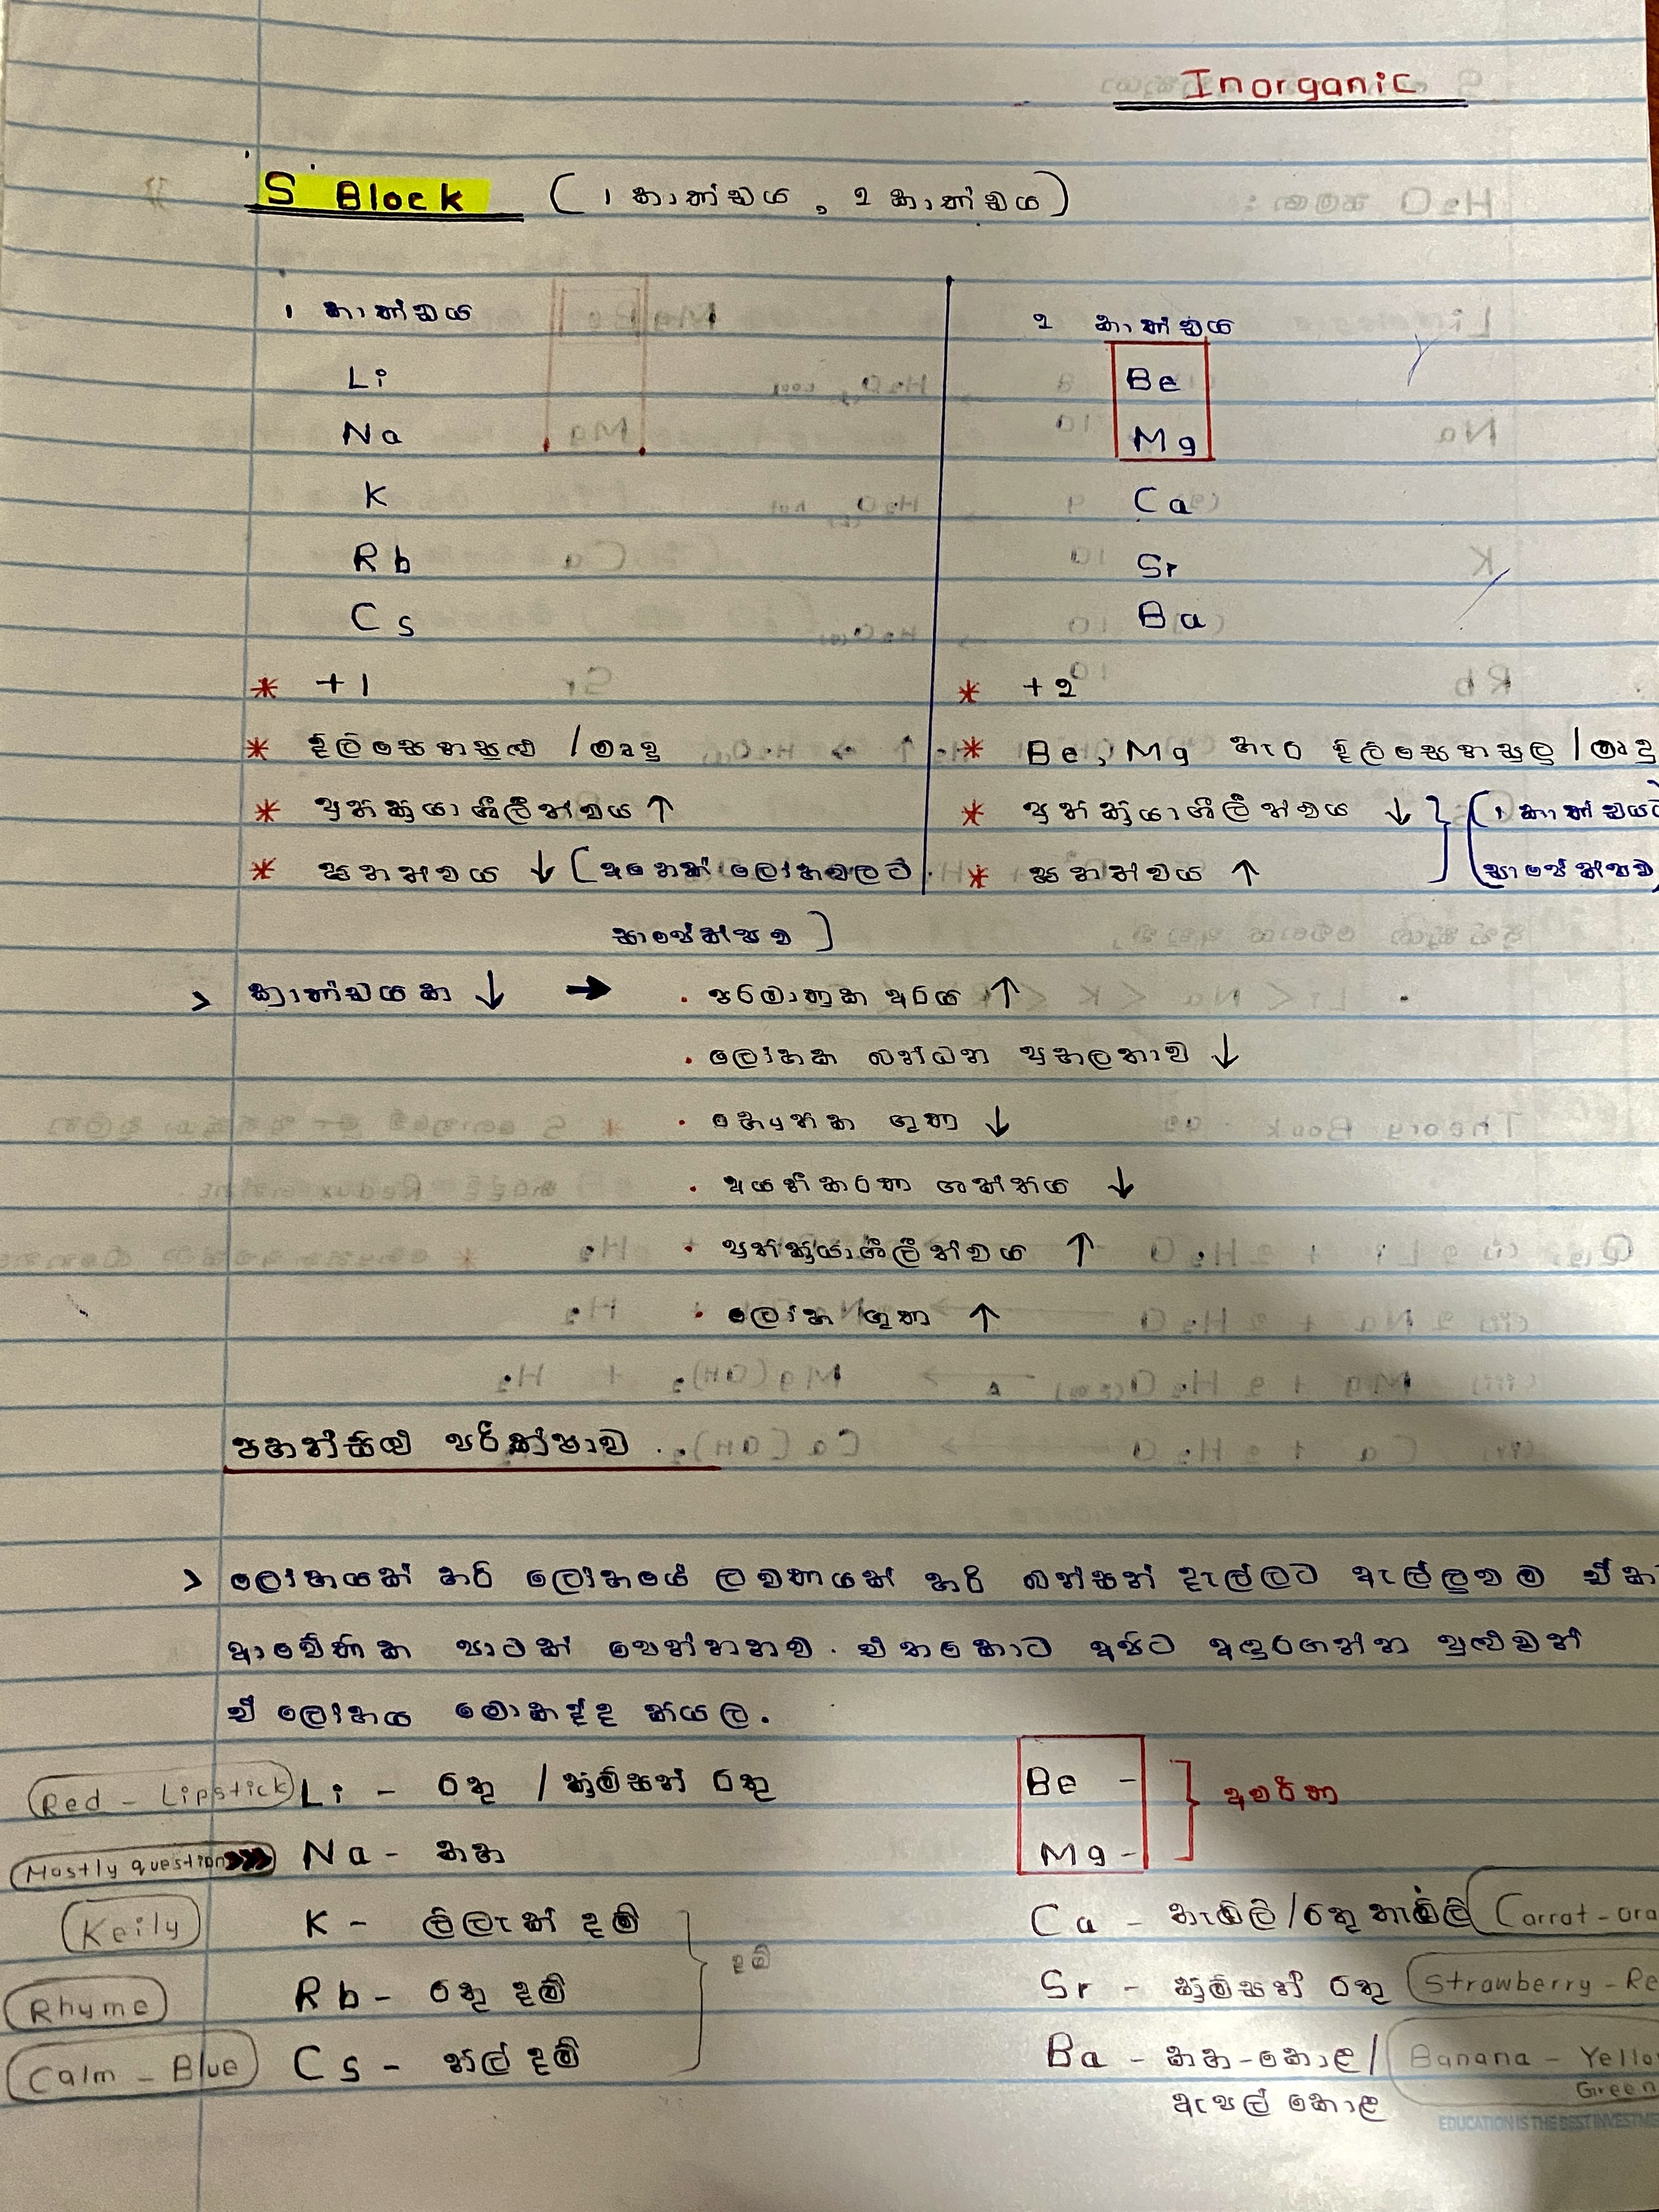 Inorganic
S Block (1 කාණ්ඩය, 2 කාණ්ඩය)
1 කාණ්ඩය
2 කාණ්ඩය
Li
Be
Na
Mg
K
Ca
Rb
Sr
Cs
Ba
* +1
* +2
* දිලිසෙනසුළු / මෘදු
* Be, Mg හැර දිලිසෙනසුලු / මෘදු
* ප්‍රතික්‍රියාශීලීත්වය ↑
* ප්‍රතික්‍රියාශීලීත්වය ↓ } (1 කාණ්ඩයට
* ඝනත්වය ↓ (අනෙක් ලෝහවලට
* ඝනත්වය ↑ සාපේක්ෂව)
සාපේක්ෂව )
> කාණ්ඩයක ↓ → · පරමාණුක අරය ↑
· ලෝහක බන්ධන ප්‍රබලතාව ↓
· භෞතික ගුණ ↓
· අයනීකරණ ශක්තිය ↓
· ප්‍රතික්‍රියාශීලීත්වය ↑
· ලෝහ ගුණ ↑
පහන්සිළු පරීක්ෂාව
> ලෝහයක් හරි ලෝහයේ ලවණයක් හරි බන්සන් දැල්ලට ඇල්ලුවම ඒකෙ
ආවේණික පාටක් පෙන්නනව. එතකොට අපිට අඳුරගන්න පුළුවන්
ඒ ලෝහය මොකද්ද කියල.
Red - Lipstick Li - රතු / ක්‍රිම්සන් රතු
Be -
Mg - } අවර්ණ
Mostly question >>> Na - කහ
Keily K - ලිලැක් දම්
Ca - තැඹිලි / රතු තැඹිලි Carrot - ora
Rhyme Rb - රතු දම්
දම්
Sr - ක්‍රිම්සන් රතු Strawberry - Re
Calm - Blue Cs - නිල් දම්
Ba - කහ - කොළ / Banana - Yello
ඇපල් කොළ Green
EDUCATION IS THE BEST INVESTME